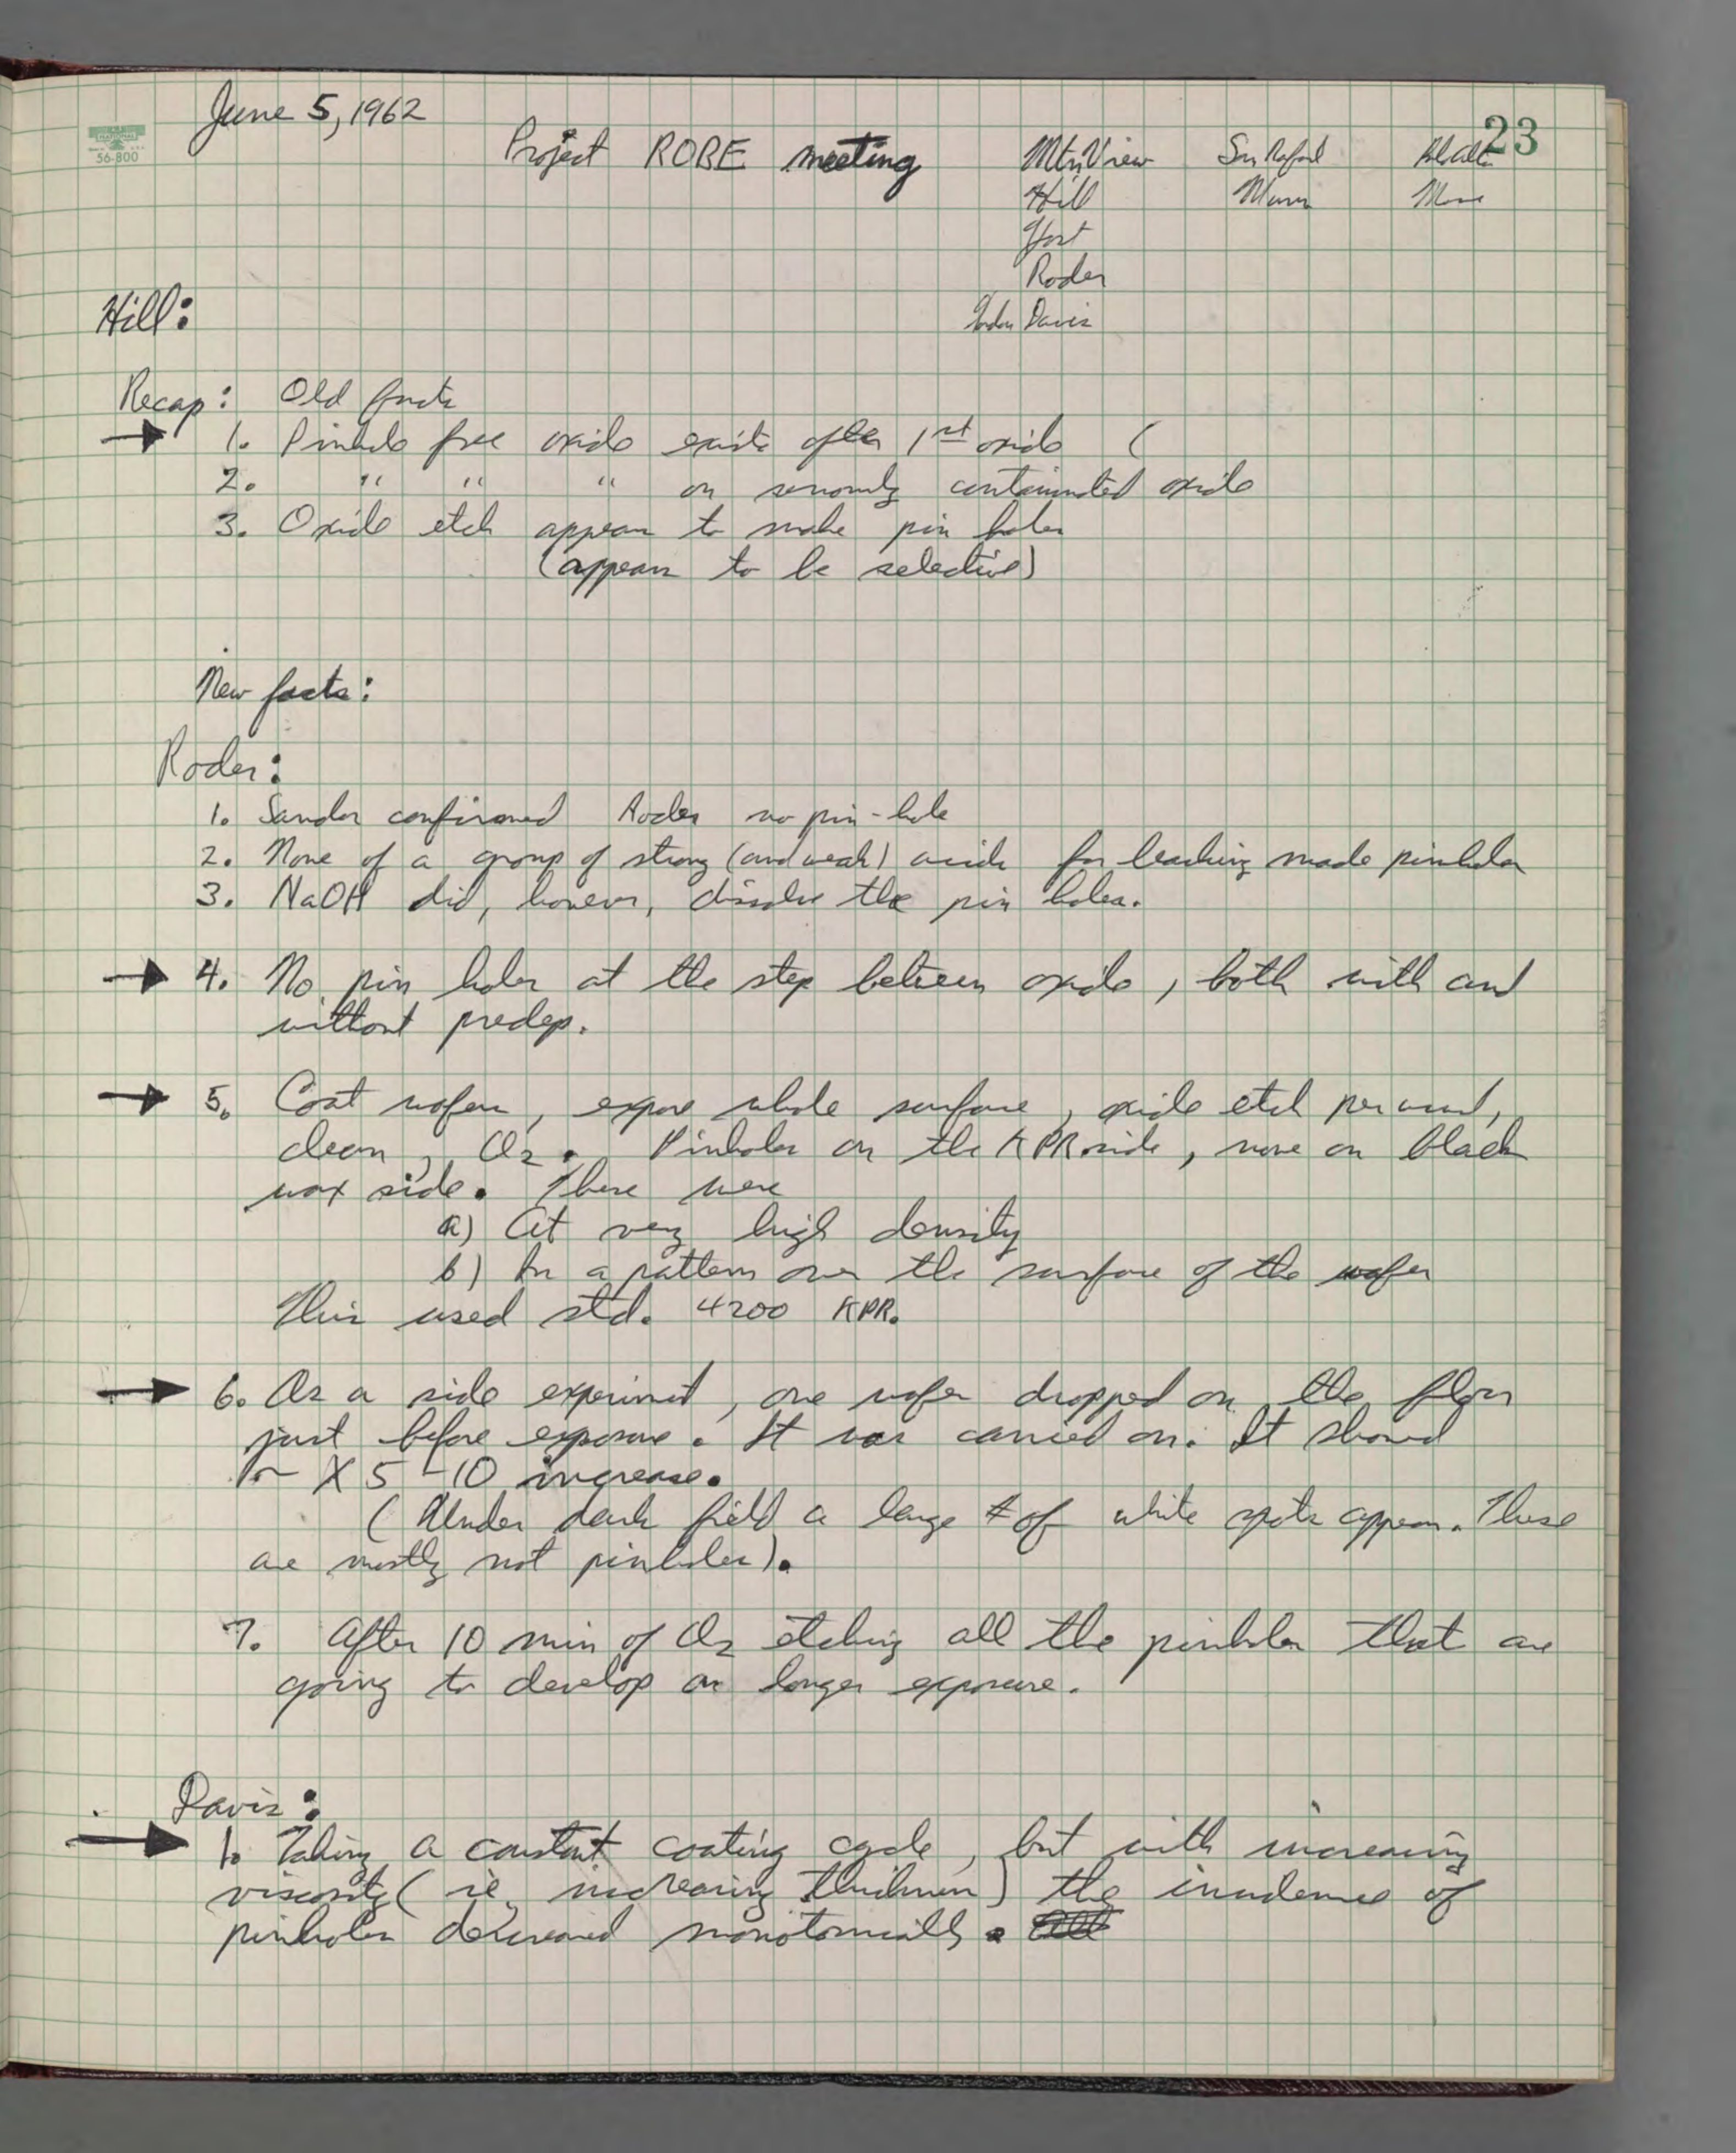 June 5, 1962
23
NATIONAL
56-800
Project ROBE meeting Mtn View San Rafael Palo Alto
Hill Moore
Yost
Roder
Davis
Hill:
Recap: Old facts
→ 1. Pinhole free oxide exists after 1st oxide (
2. " " " on seriously contaminated oxide
3. Oxide etch appears to make pin holes
(appears to be selective)
New facts:
Roder:
1. Sandor confirmed Roder no pin-hole
2. None of a group of strong (and weak) acids for leaching made pinholes
3. NaOH did, however, dissolve the pin holes.
→ 4. No pin holes at the step between oxide, both with and
without predep.
→ 5. Coat wafers, expose whole surface, oxide etch per usual,
clean, Cl2. Pinholes on the KPR side, none on black
wax side. These were
a) At very high density
b) In a pattern over the surface of the wafer
This used std. 4200 KPR.
→ 6. As a side experiment, one wafer dropped on the floor
just before exposure. It was carried on. It showed
~ X 5-10 increase.
(Under dark field a large # of white spots appear. These
are mostly not pinholes).
7. After 10 min of Cl2 etching all the pinholes that are
going to develop on longer exposure.
Davis:
→ 1. Taking a constant coating cycle, but with increasing
viscosity (ie, increasing thickness) the incidence of
pinholes decreased monotonically.